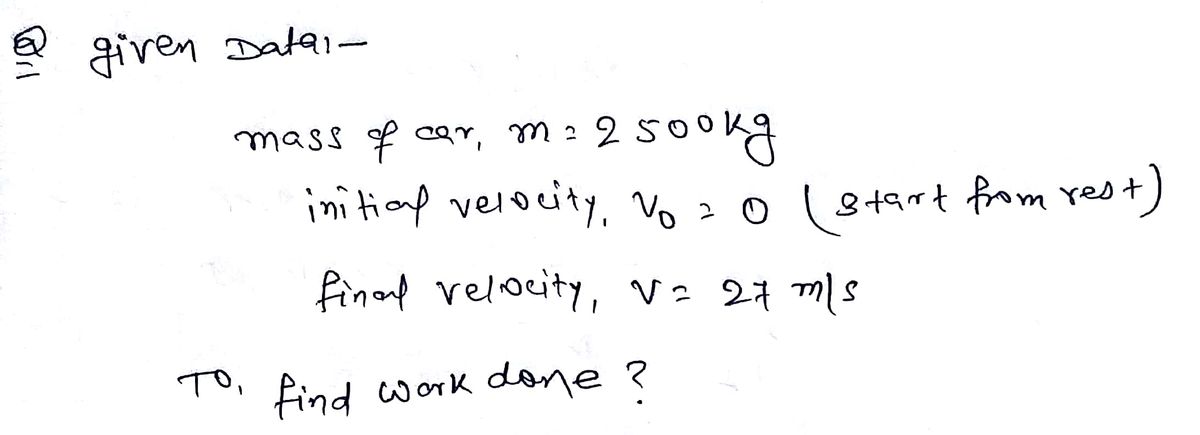 Q given Data:-
mass of car, m = 2500kg
initial velocity, V₀ = 0 (start from rest)
final velocity, V = 27 m/s
TO, find work done ?